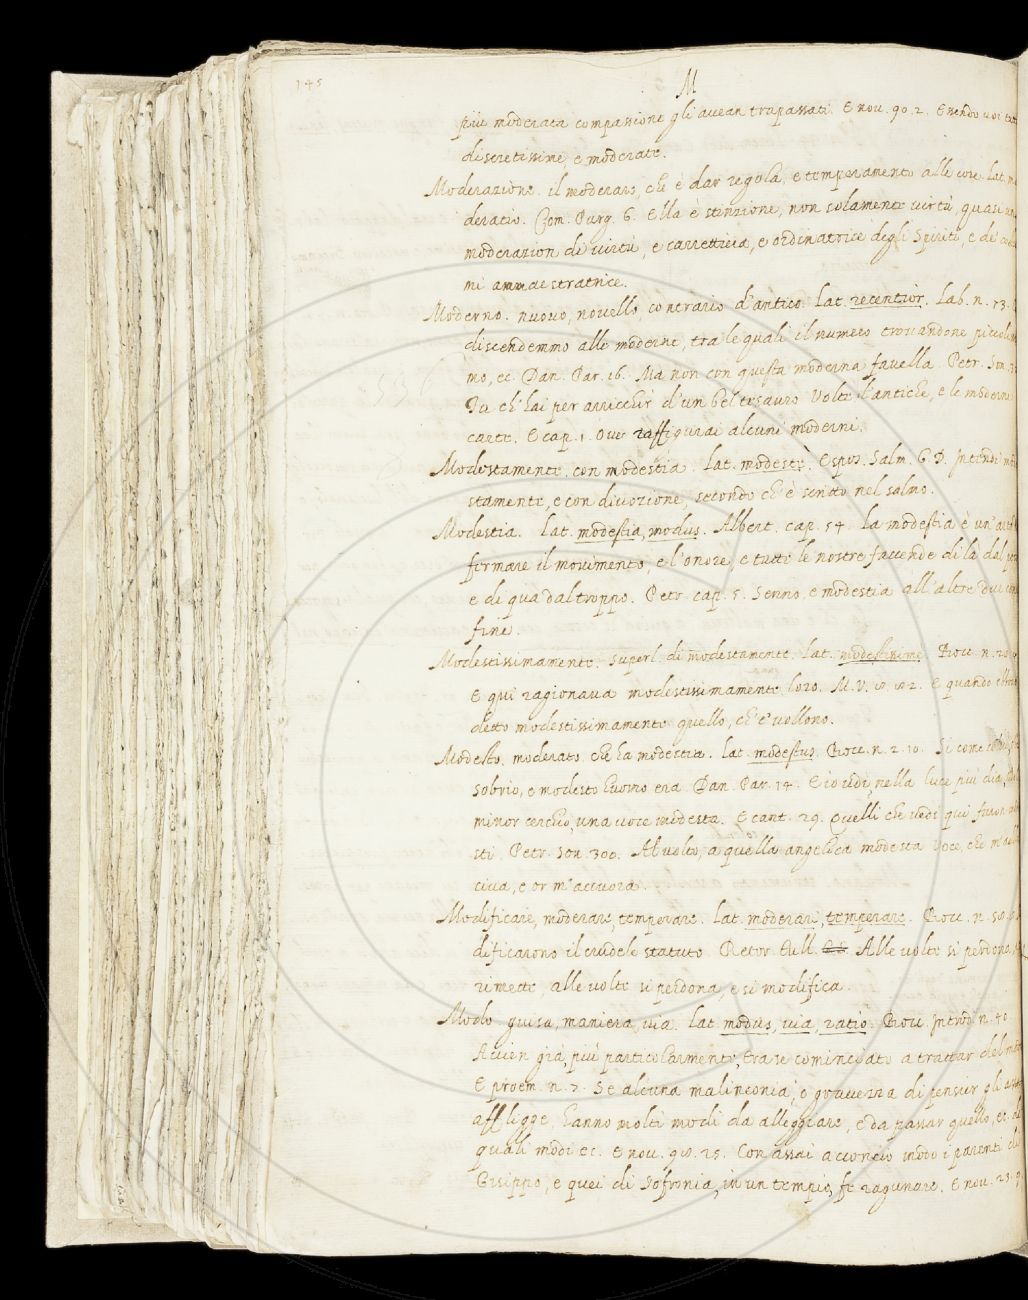 145
M
più moderata compassione gli avean trapassati. E nov. 90. 2. Essendo voi
discretissime, e moderate.
Moderazione. il moderare, che è dar regola, e temperamento alle cose. Lat. mo
deratio. Com. Purg. 6. Ella è stinzione, non solamente virtù, quasi
moderazion de virtù, e carrettiera, e ordinatrice degli Spiriti, e de' co
mi ammaestratrice.
Moderno. nuovo, novello, contrario d'antico. Lat. recentior. Lab. n. 73.
discendemmo alle moderne, tra le quali il numero trovandone piccoli
mo, ec. Dan. Par. 16. Ma non con questa moderna favella. Petr. Son. 3
Tu ch'hai per arricchir d'un bel tesauro Volte l'antiche, e le moderne
carte. E cap. 1. Ove raffigurai alcuni moderni.
Modestamente. con modestia. Lat. modestè. Espos. Salm. G. D. Intendi
stamente, e con divozione, secondo ch'è scritto nel salmo.
Modestia. Lat. modestia, modus. Albert. cap. 54. La modestia è un'
fermare il movimento, e l'onore, e tutte le nostre faccende di là dal
e di qua dal troppo. Petr. cap. 5. Senno, e modestia all'altre due
fine.
Modestissimamente. superl. di modestamente. Lat. modestissime. Bocc. n. 20
E quì ragionava modestissimamente loro. M. V. E quando
detto modestissimamente quello, ch'e' vollono.
Modesto. moderato, che ha modestia. Lat. modestus. Bocc. n. 2. 10. Si come
sobrio, e modesto huomo era. Dan. Par. 14. E io udì, nella luce più dia,
minor cerchio, una voce modesta. E cant. 29. Quelli che vedi qui furon
sti. Petr. Son. 300. Al volto, a quella angelica modesta Voce, che m'
civa, e or m'accuora.
Modificare, moderare, temperare. Lat. moderari, temperare. Bocc. n.
dificarono il crudele statuto. Retor. Tull. Alle volte si perdona,
rimette, alle volte si perdona, e si modifica.
Modo guisa, maniera, via. Lat. modus, via, ratio. Bocc. Introd. n. 40
Avien già, più particolarmente, tra se cominciato a trattar del
E proem. n. 7. Se alcuna malinconia, o gravezza di pensier gli
affligge, hanno molti modi da alleggiare, e da passar quello, ec.
quali modi ec. E nov. 98. 25. Con assai acconcio modo i parenti di
Gisippo, e quei di Sofronia, in un tempio, fe ragunare. E nov. 25.